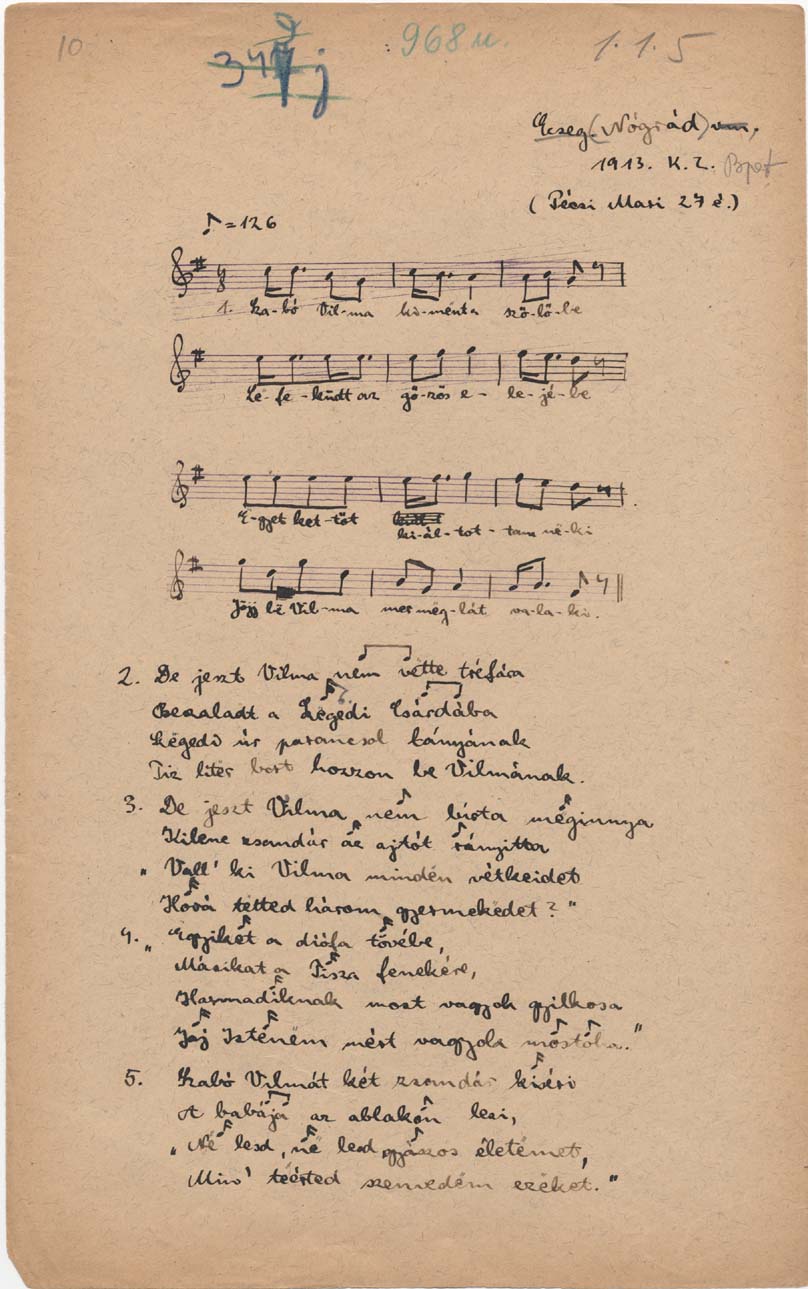 10
968 u.
1. 1. 5
Ecseg (Nógrád) vm,
1913. K. Z. Bpest
(Pécsi Mari 27 é.)
♪ = 126
1. Sza-bó Vil-ma ki-mënt a sző-lő-be
Lë-fe-küdt az gő-zös e- le-jé-be
E-gyet ket-tőt
ki-ál-tot-tam në-ki
Jőjj lë Vil-ma mer mëg-lát va-la-ki.
2. De jeszt Vilma nem vëtte tréfára
Beszaladt a Szëgedi Csárdába
Szëgedi úr parancsol lányának
Tiz liter bort hozzon be Vilmának.
3. De jeszt Vilma nem birta mëginnya
Kilenc zsandár az ajtót rányitta
„Vall' ki Vilma mindën vétkeidet
Hová tëtted három gyermekëdet?"
4. „Egyikët a diófa tövébe,
Másikat a Tisza fenekére,
Harmadiknak most vagyok gyilkosa
Jáj Istenëm mért vagyok mostoha."
5. Szabó Vilmát két zsandár kiséri
A babája az ablakon lesi,
„Në lesd, në lesd gyászos életëmet,
Miró' teérted szenvedëm ezëket."